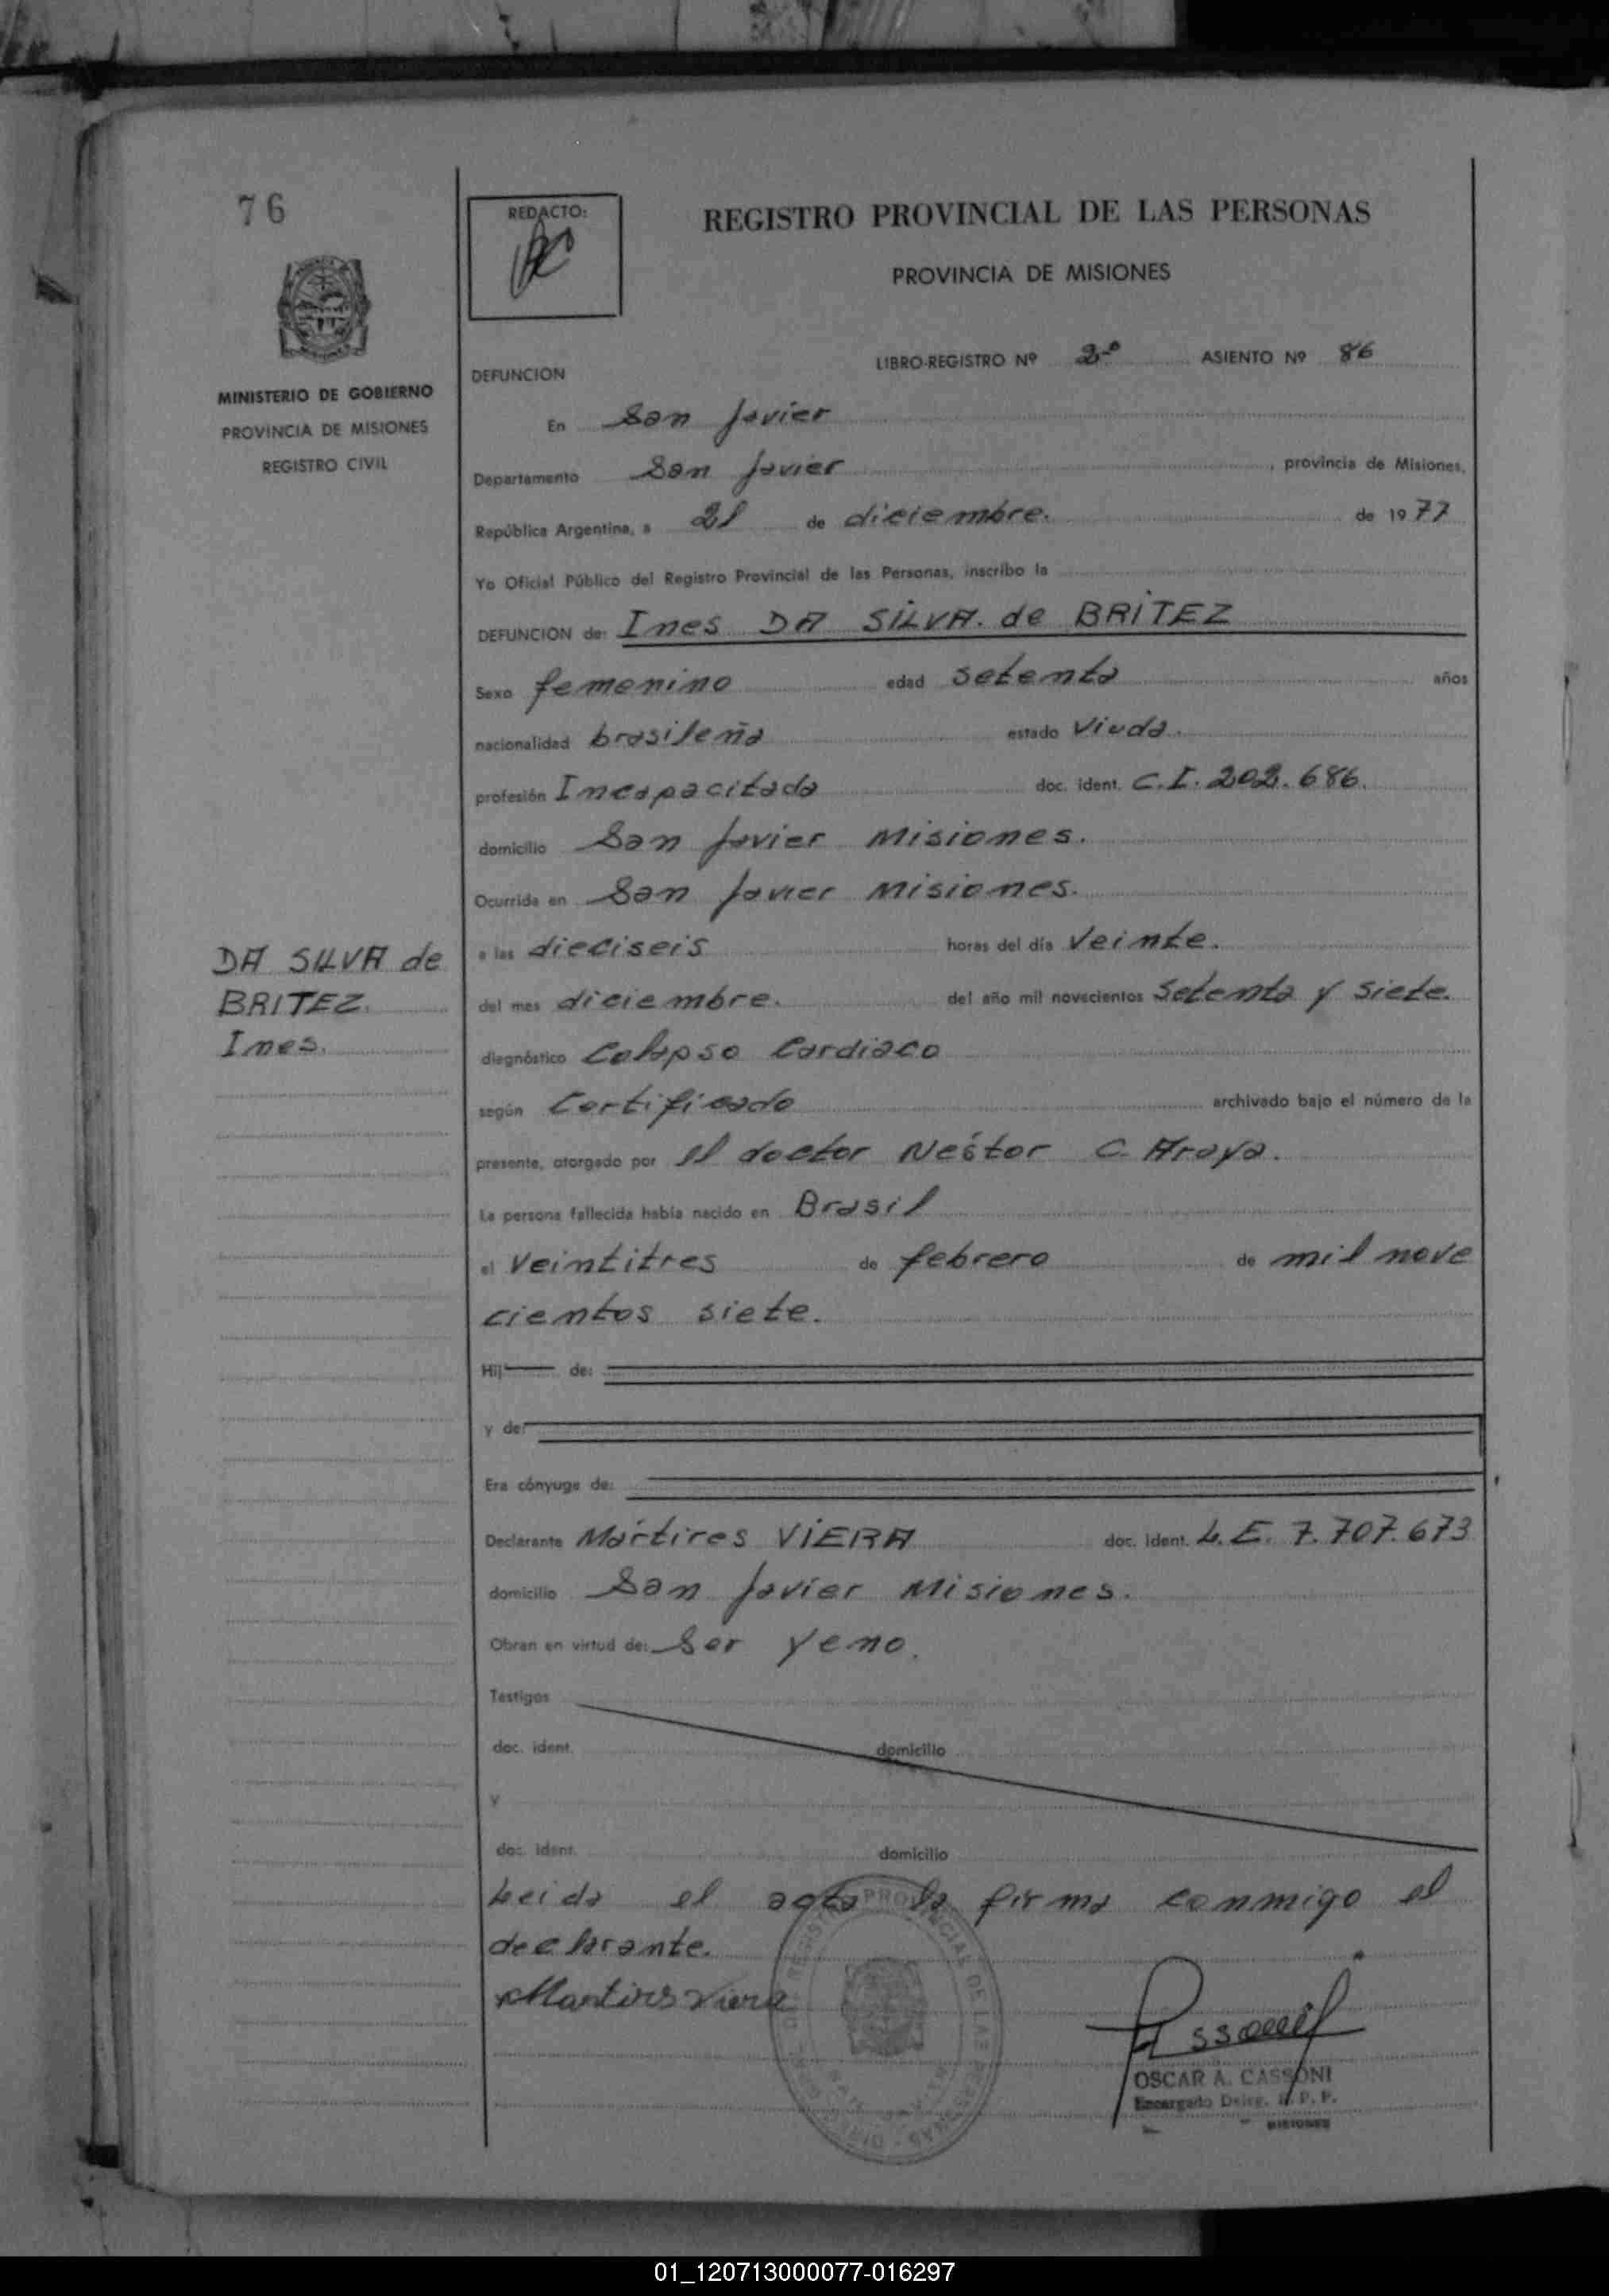 76
REDACTO:
REGISTRO PROVINCIAL DE LAS PERSONAS
PROVINCIA DE MISIONES
MINISTERIO DE GOBIERNO
PROVINCIA DE MISIONES
REGISTRO CIVIL
LIBRO-REGISTRO Nº 2º ASIENTO Nº 86
DEFUNCION
En San Javier
Departamento San Javier, provincia de Misiones,
República Argentina, a 21 de diciembre. de 1977
Yo Oficial Público del Registro Provincial de las Personas, inscribo la
DEFUNCION de: Ines DA SILVA. de BRITEZ
Sexo femenino edad setenta años
nacionalidad brasileña estado Viuda.
profesión Incapacitada doc. ident. C.I. 202.686.
domicilio San Javier Misiones.
Ocurrida en San Javier Misiones.
a las dieciseis horas del día Veinte.
del mes diciembre. del año mil novecientos Setenta y siete.
diagnóstico Colapso Cardiaco
según Certificado archivado bajo el número de la
presente, otorgado por el doctor Nestor C. Araya.
La persona fallecida había nacido en Brasil
el Veintitres de febrero de mil nove
cientos siete.
Hij de:
y de:
Era cónyuge de:
Declarante Mártires VIERA doc. ident. L.E. 7.707.673
domicilio San Javier Misiones.
Obran en virtud de: Ser yeno.
Testigos
doc. ident. domicilio
y
doc. ident. domicilio
Leida el acta la firma conmigo el
declarante.
Martires Viera
OSCAR A. CASSONI
Encargado Deleg. R. P. P.
MISIONES
DA SILVA de
BRITEZ.
Ines.
REGISTRO PROVINCIAL DE LAS PERSONAS
01_120713000077-016297